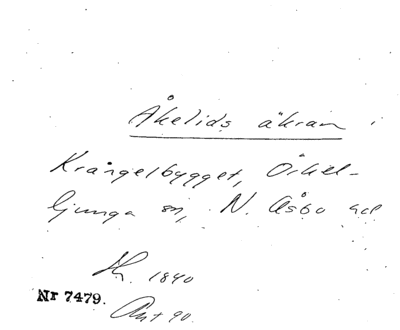 Åkelids åkran i
Krångelbygget, Örkel-
ljunga sn, N. Åsbo hd
1840
Nr 7479.
Ant 90.